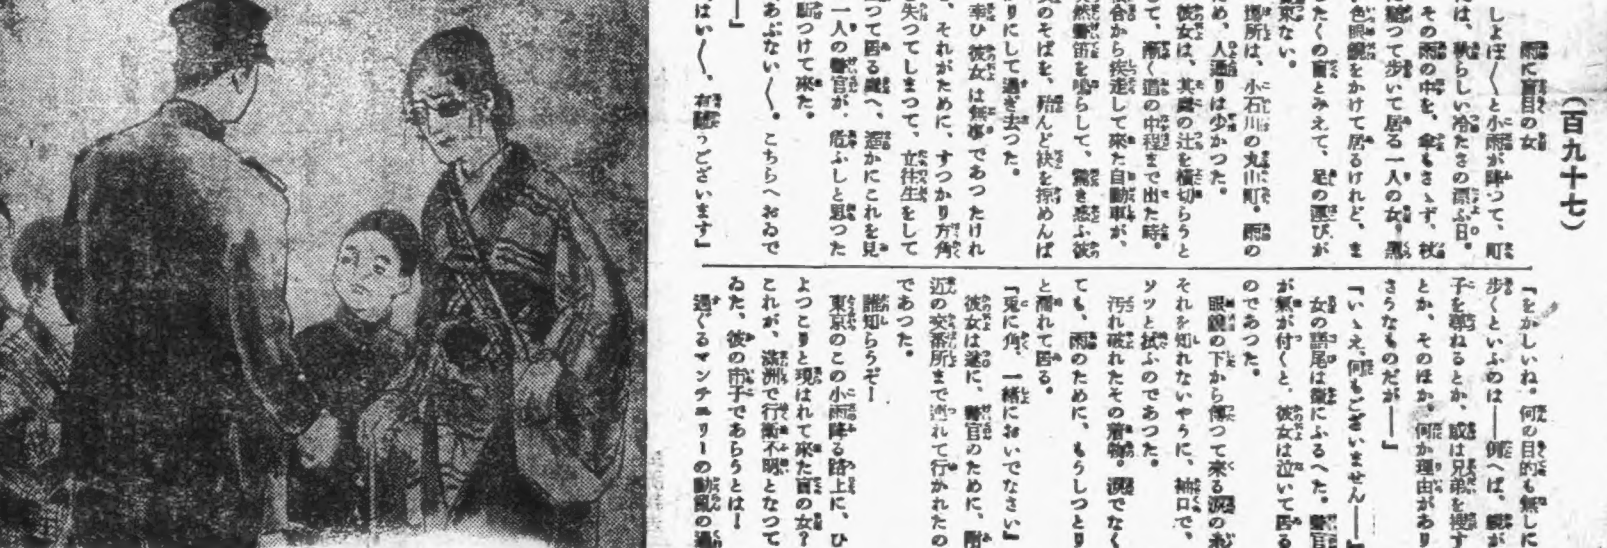 (百九十七)
雨に盲目の女
しよぼ〳〵と小雨が降つて、町
は、秋らしい冷たさの漂ふ日。
その雨の中を、傘もさゝず、杖
に縋つて歩いて居る一人の女。黒
色眼鏡をかけて居るけれど、ま
したくの盲とみえて、足の運びが
束ない。
場所は、小石川の丸山町。雨の
ため、人通りは少かつた。
彼女は、其處の辻を横切らうと
して、漸く道の中程まで出た時。
合から疾走して來た自動車が、
突然警笛を鳴らして、驚き惑ふ彼
女のそばを、殆んど袂を掠めんば
りにして過ぎ去つた。
幸ひ彼女は無事であつたけれ
、それがために、すつかり方角
失つてしまつて、立往生をして
つて居る處へ、遥かにこれを見
一人の警官が、危ふしと思つた
駈つけて來た。
あぶない〳〵。こちらへおゐで
―』
はい〳〵、有難うございます』
『をかしいね。何の目的も無しに
歩くといふのは――例へば、親が
子を尋ねるとか、或は兄弟を捜す
とか、そのほか。何か理由があり
さうなものだが――』
『いゝえ、何もございません――』
女の語尾は微にふるへた。警官
が氣が付くと、彼女は泣いて居る
のであつた。
眼鏡の下から傳つて來る涙の
それを知れないやうに、袖口で、
ソツと拭ふのであつた。
汚れ破れたその着物。涙でなく
ても、雨のために、もうしつとり
と濡れて居る。
『兎に角、一緒においでなさい』
彼女は遂に、警官のために、附
近の交番所まで連れて行かれたの
であつた。
誰知らうぞ！
東京のこの小雨降る路上に、ひ
よつこりと現はれて來た盲の女？
これが、滿洲で行衞不明となつて
ゐた、彼の市子であらうとは！
過ぐるマンチユリーの動亂の